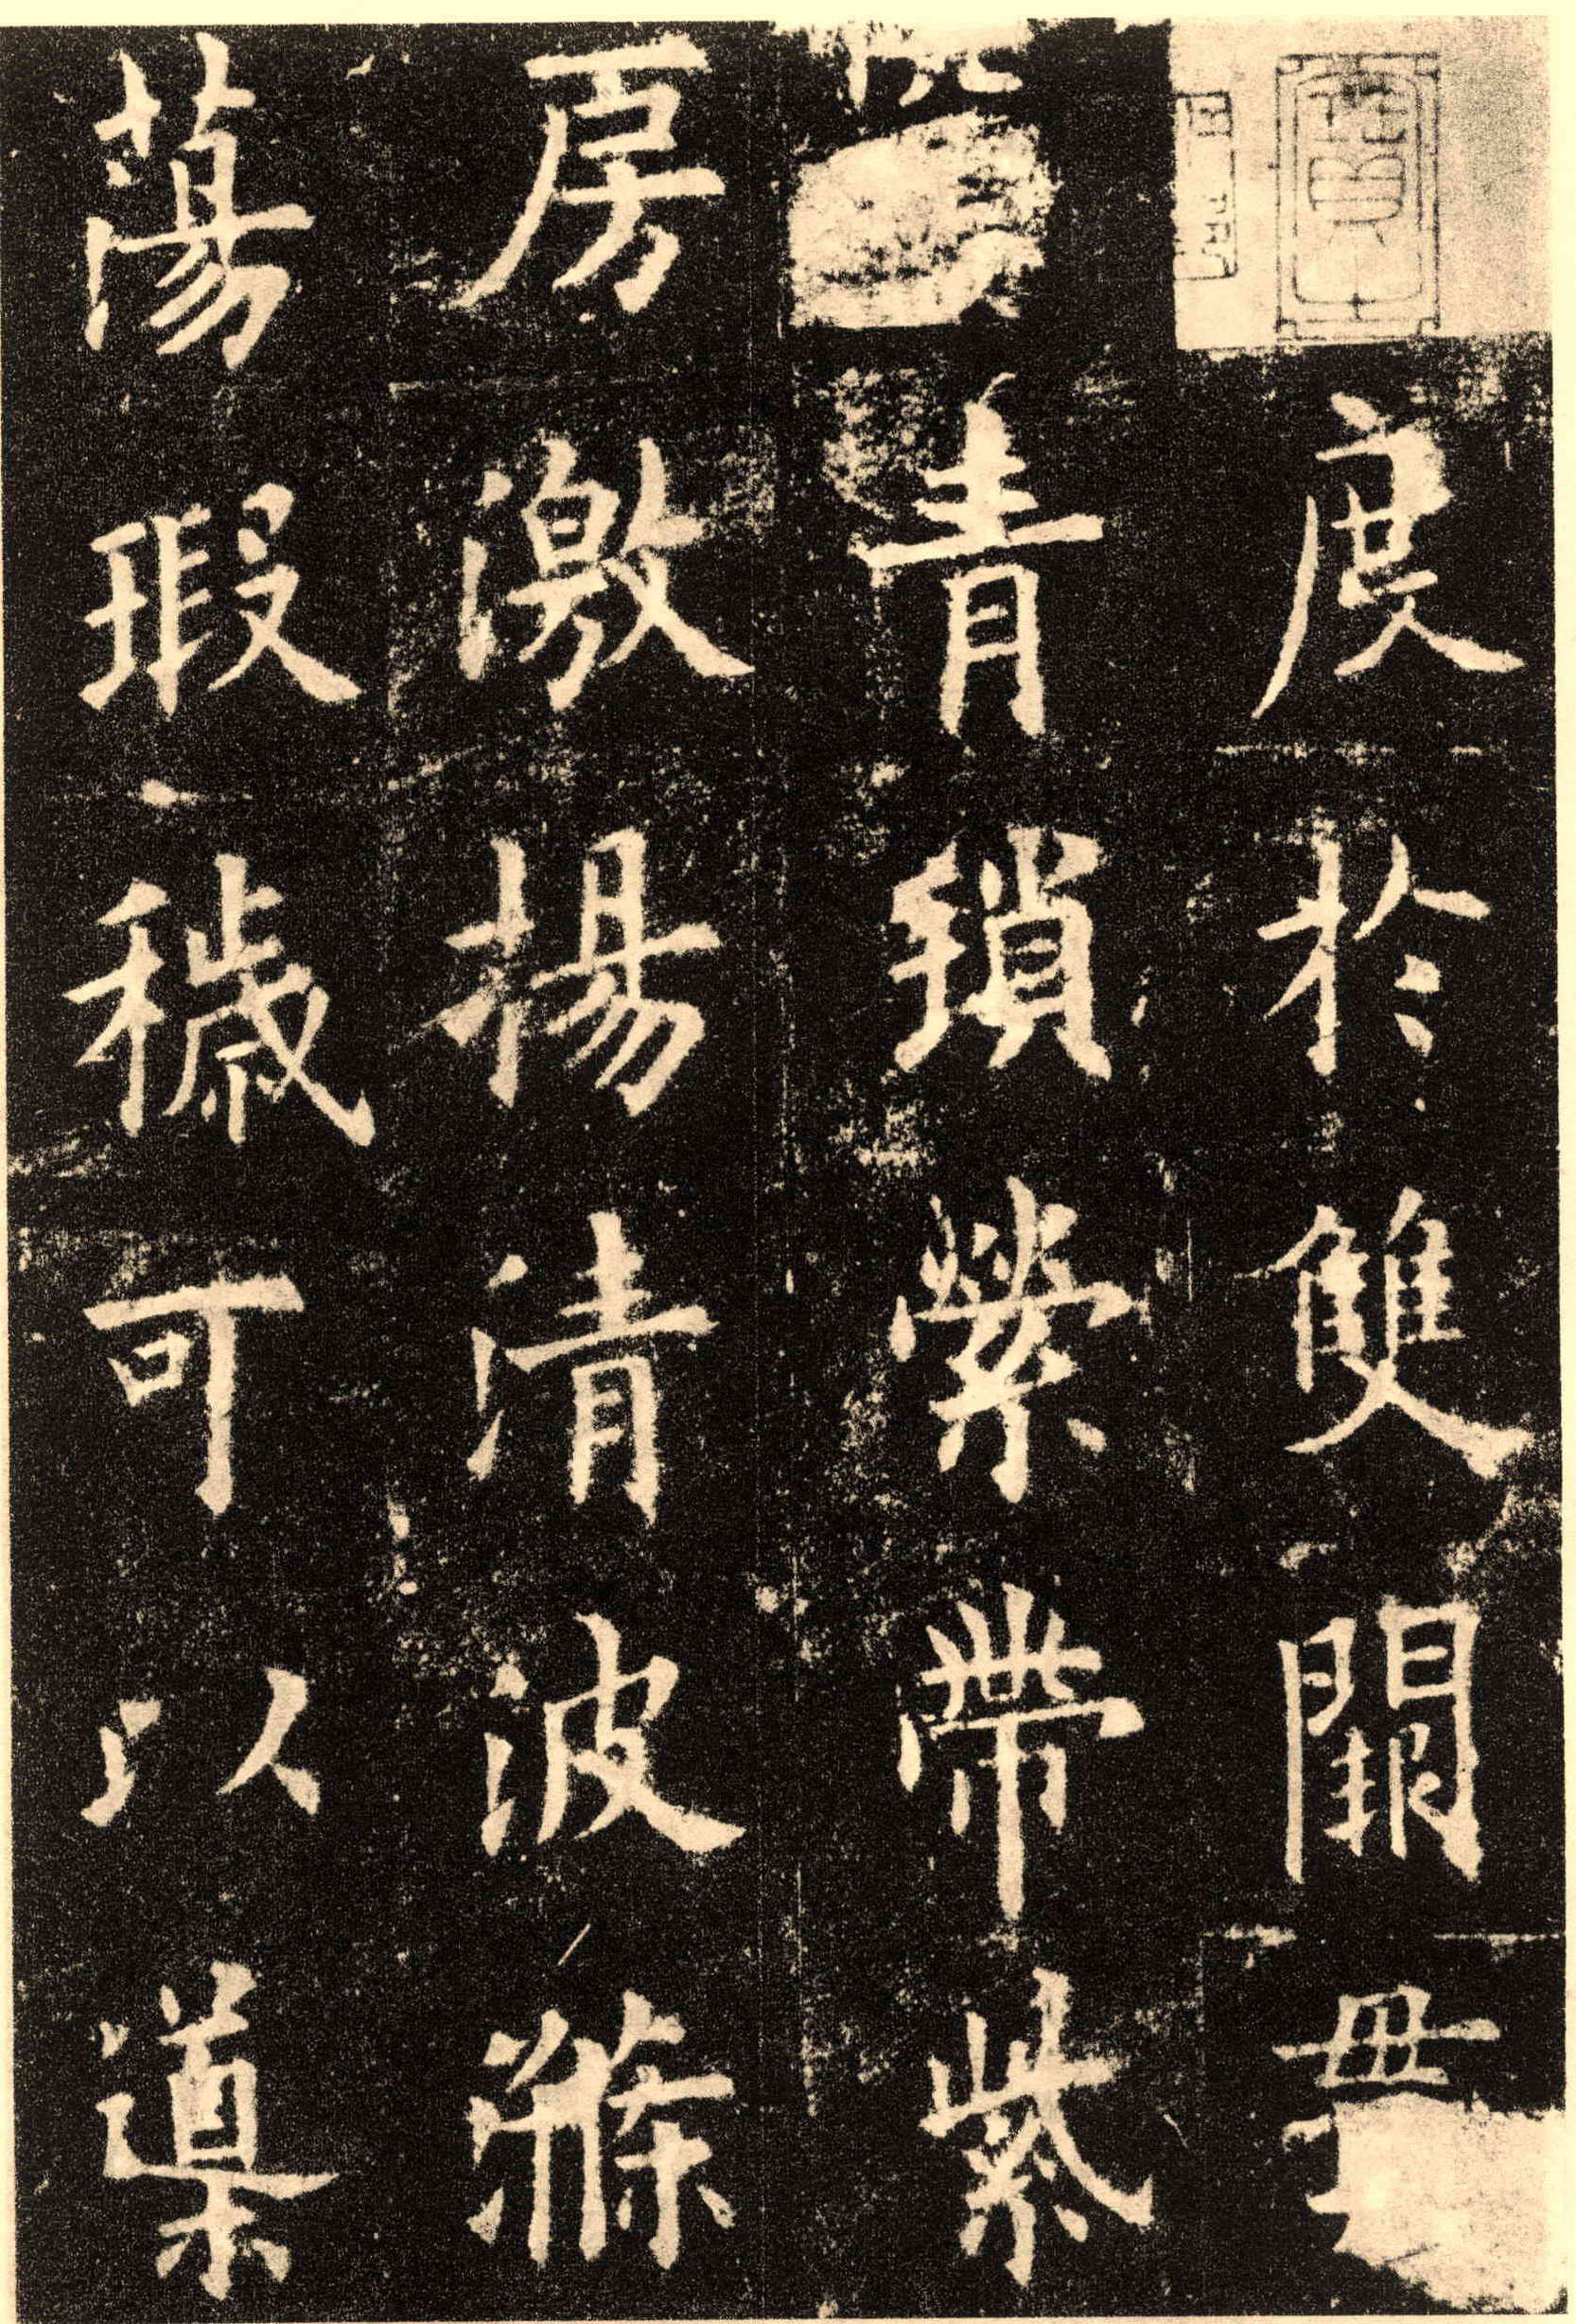 度於雙闕貫
青鎖縈帶紫
房激揚清波滌
蕩瑕穢可以導